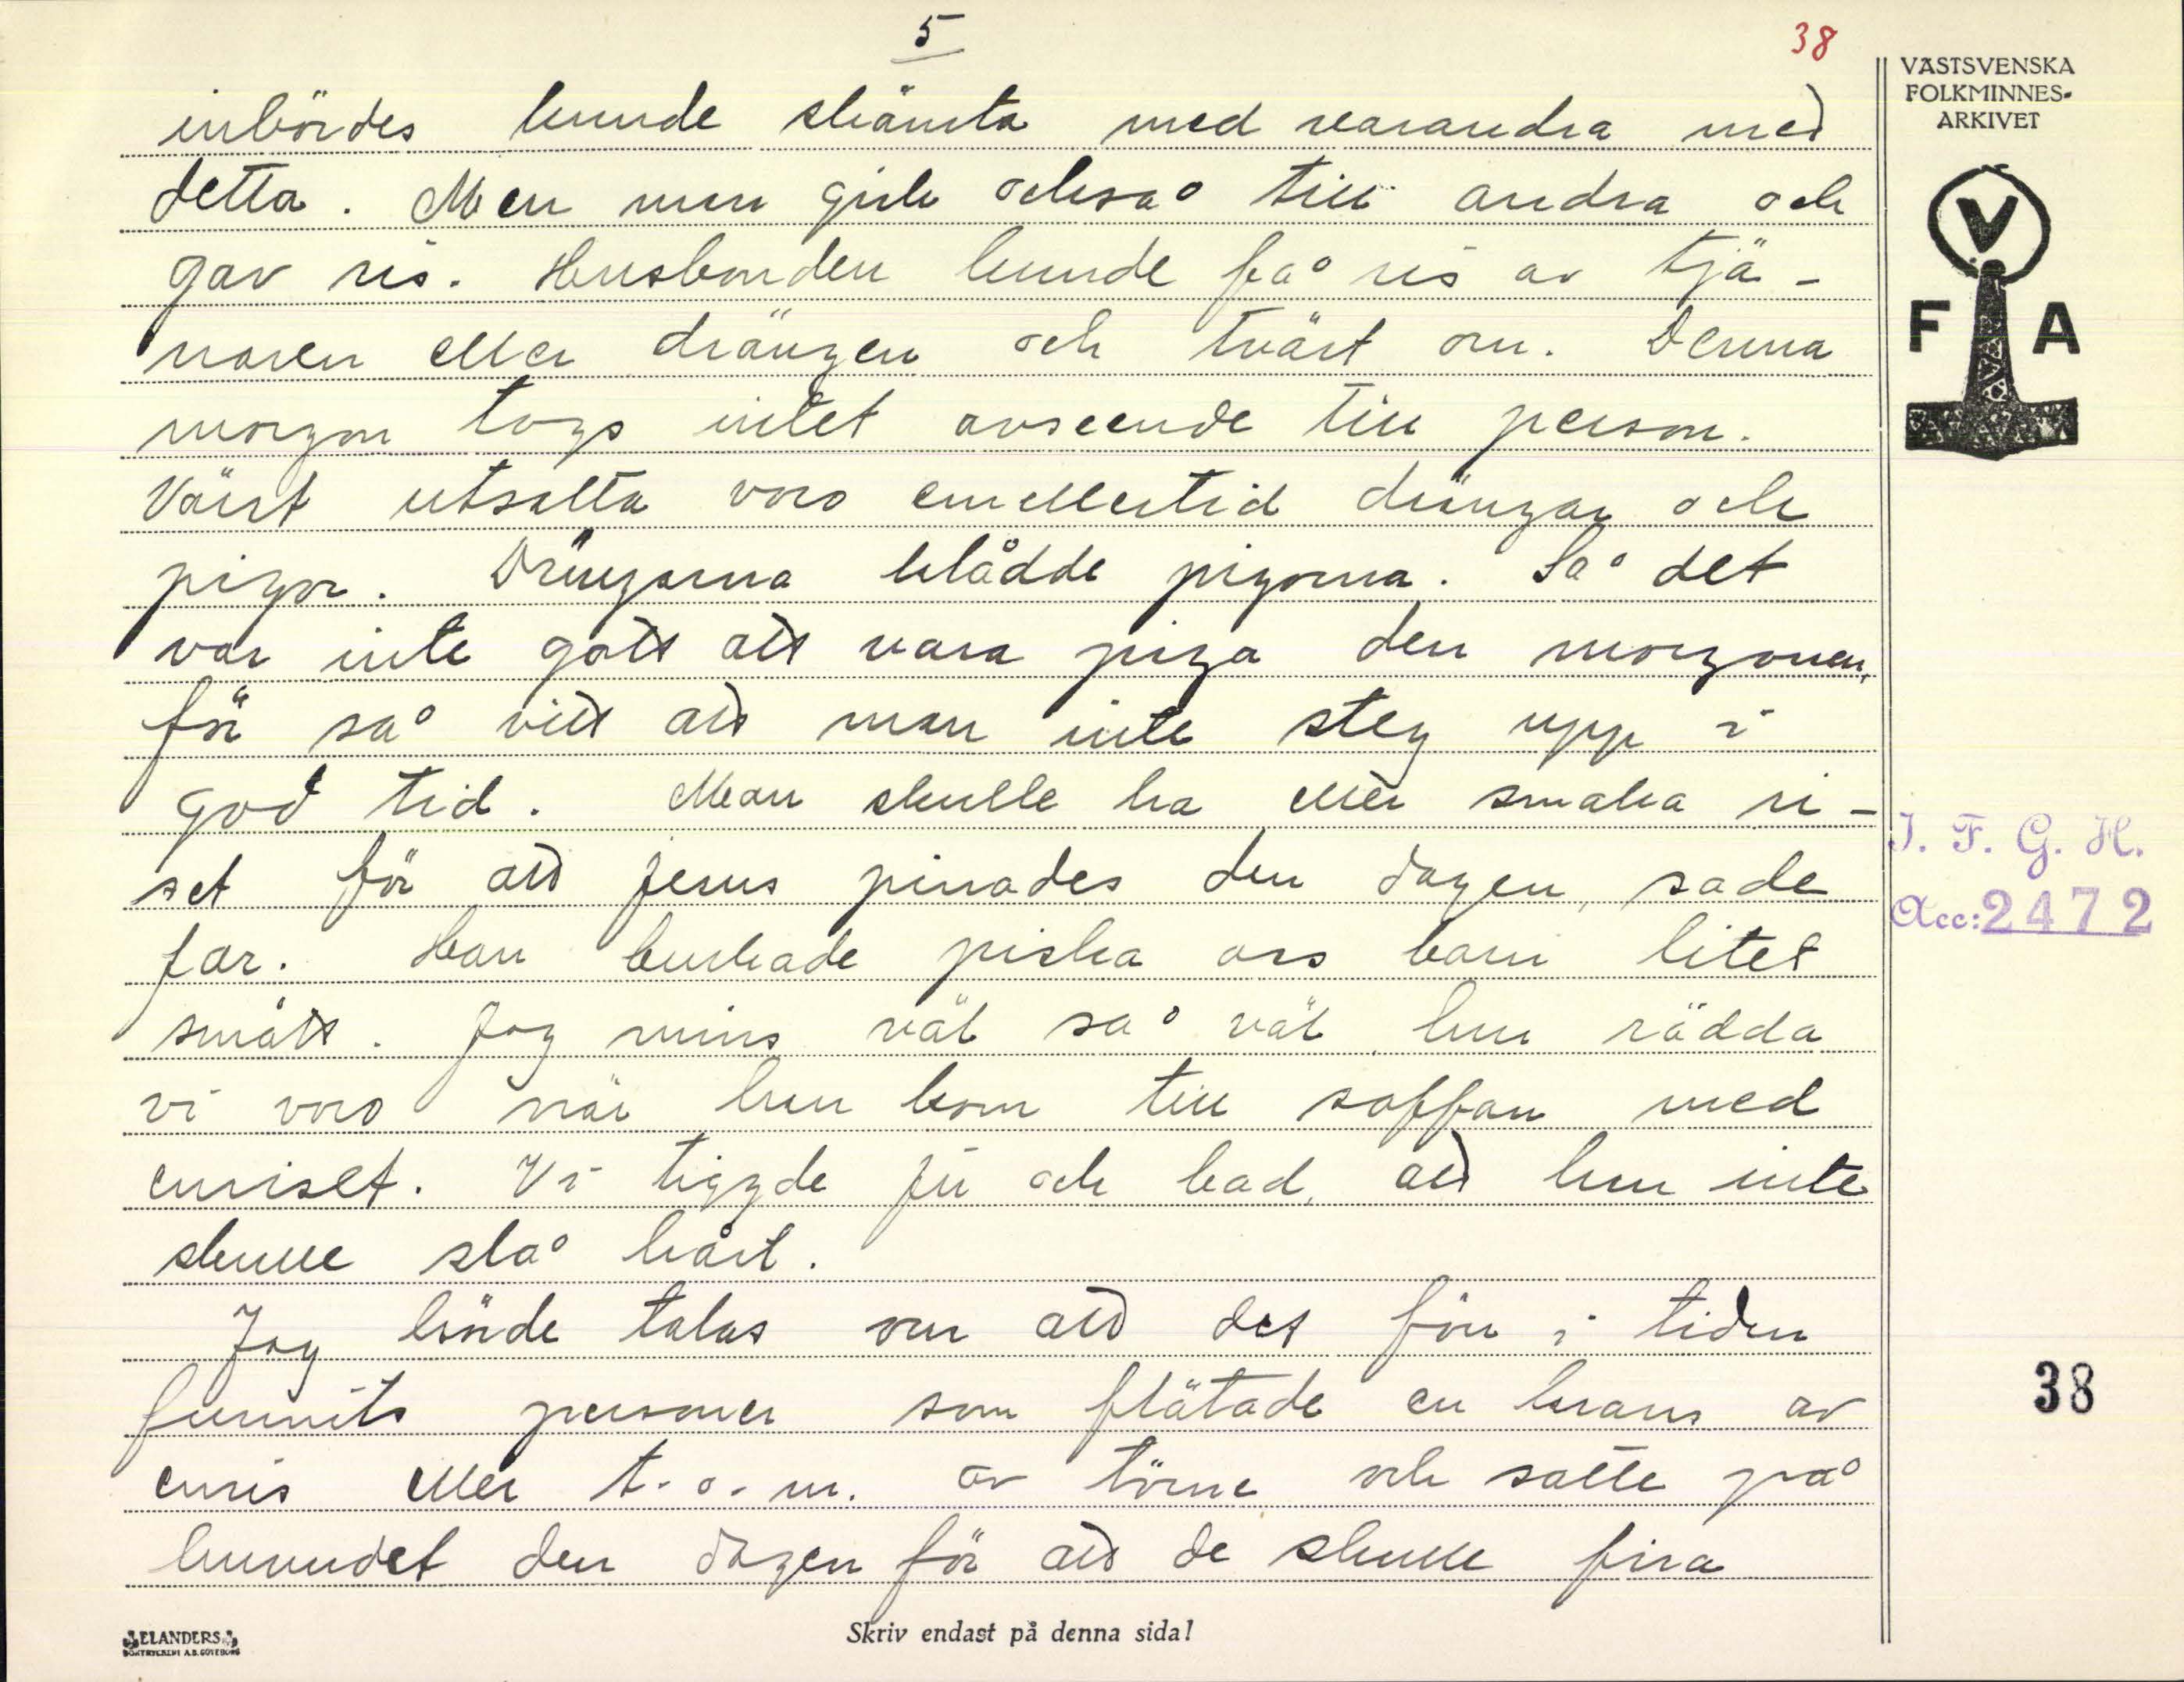 5
38
inbördes kunde skämta med varandra med
detta. Men man gick också till andra och
gav ris. Husbonden kunde få ris av tjä-
naren eller drängen och tvärt om. Denna
morgon togs intet avseende till person.
Värst utsatta voro emellertid drängar och
pigor. Drängarna klådde pigorna. Så det
var inte gott att vara piga den morgonen,
för så vitt att man inte steg upp i
god tid. Man skulle ha eller smaka ri-
set för att Jesus pinades den dagen, sade
far. Han brukade piska oss barn litet
smått. Jag mins väl så väl hur rädda
vi voro när han kom till soffan med
enriset. Vi tiggde ju och bad, att han inte
skulle slå hårt.
Jag hörde talas om att det förr i tiden
funnits personer som flätade en krans av
enris eller t.o.m. av törne och satte på
huvudet den dagen för att de skulle fira
VÄSTSVENSKA
FOLKMINNES-
ARKIVET
V
F A
I. F. G. H.
Acc: 2472
38
ELANDERS
BOKTRYCKERI A.B. GÖTEBORG
Skriv endast på denna sida!